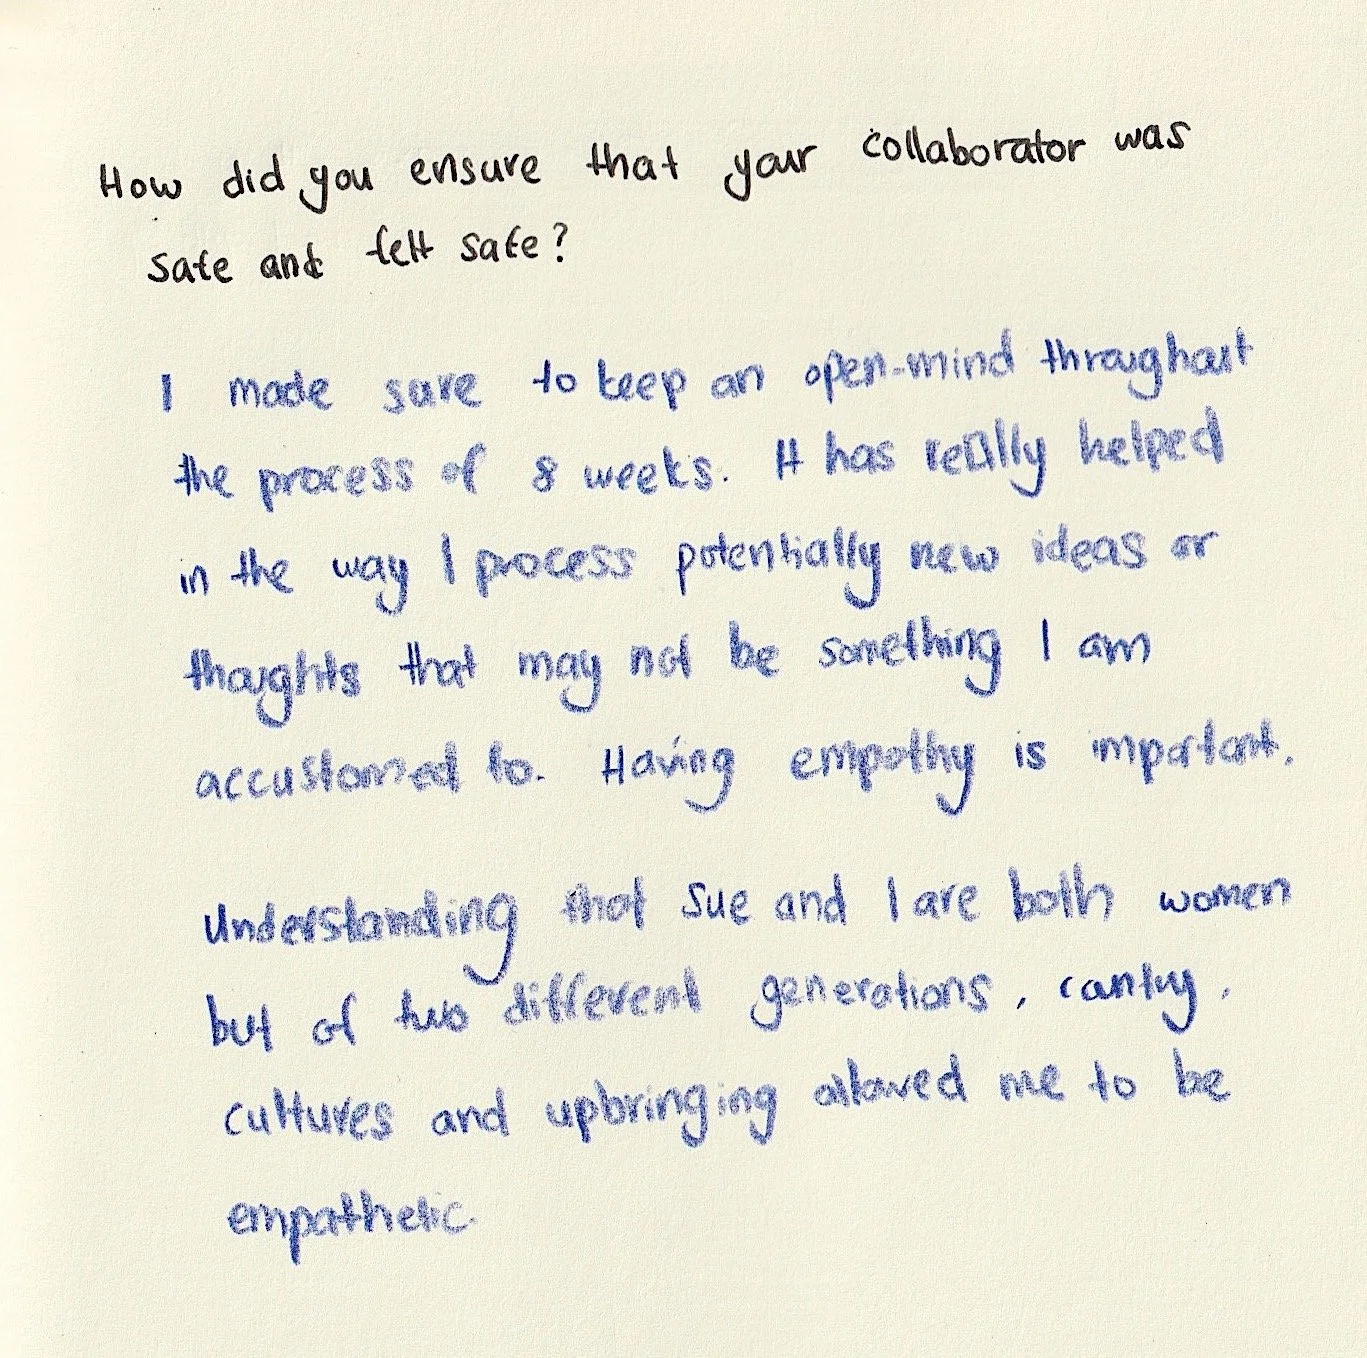 How did you ensure that your collaborator was
safe and felt safe?
I made sure to keep an open-mind throughout
the process of 8 weeks. It has really helped
in the way I process potentially new ideas or
thoughts that may not be something I am
accustomed to. Having empathy is important.
Understanding that Sue and I are both women
but of two different generations, country,
cultures and upbringing allowed me to be
empathetic.